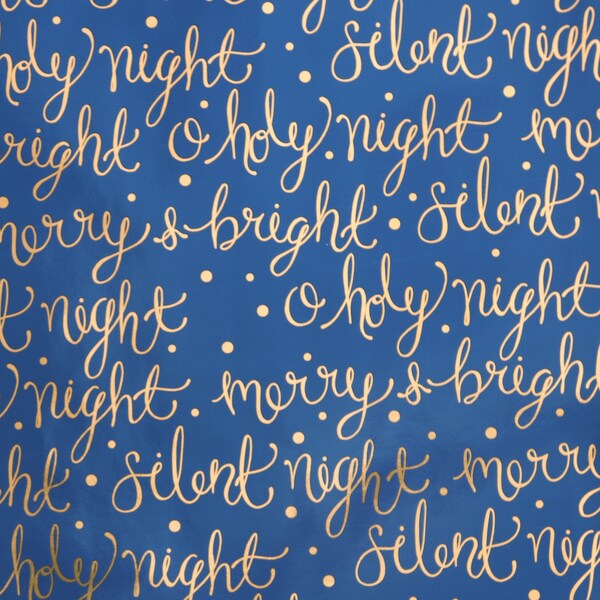 holy night silent night
right o holy night me
merry & bright silent
t night o holy night
night merry & bright
ht silent night merry
holy night silent nig